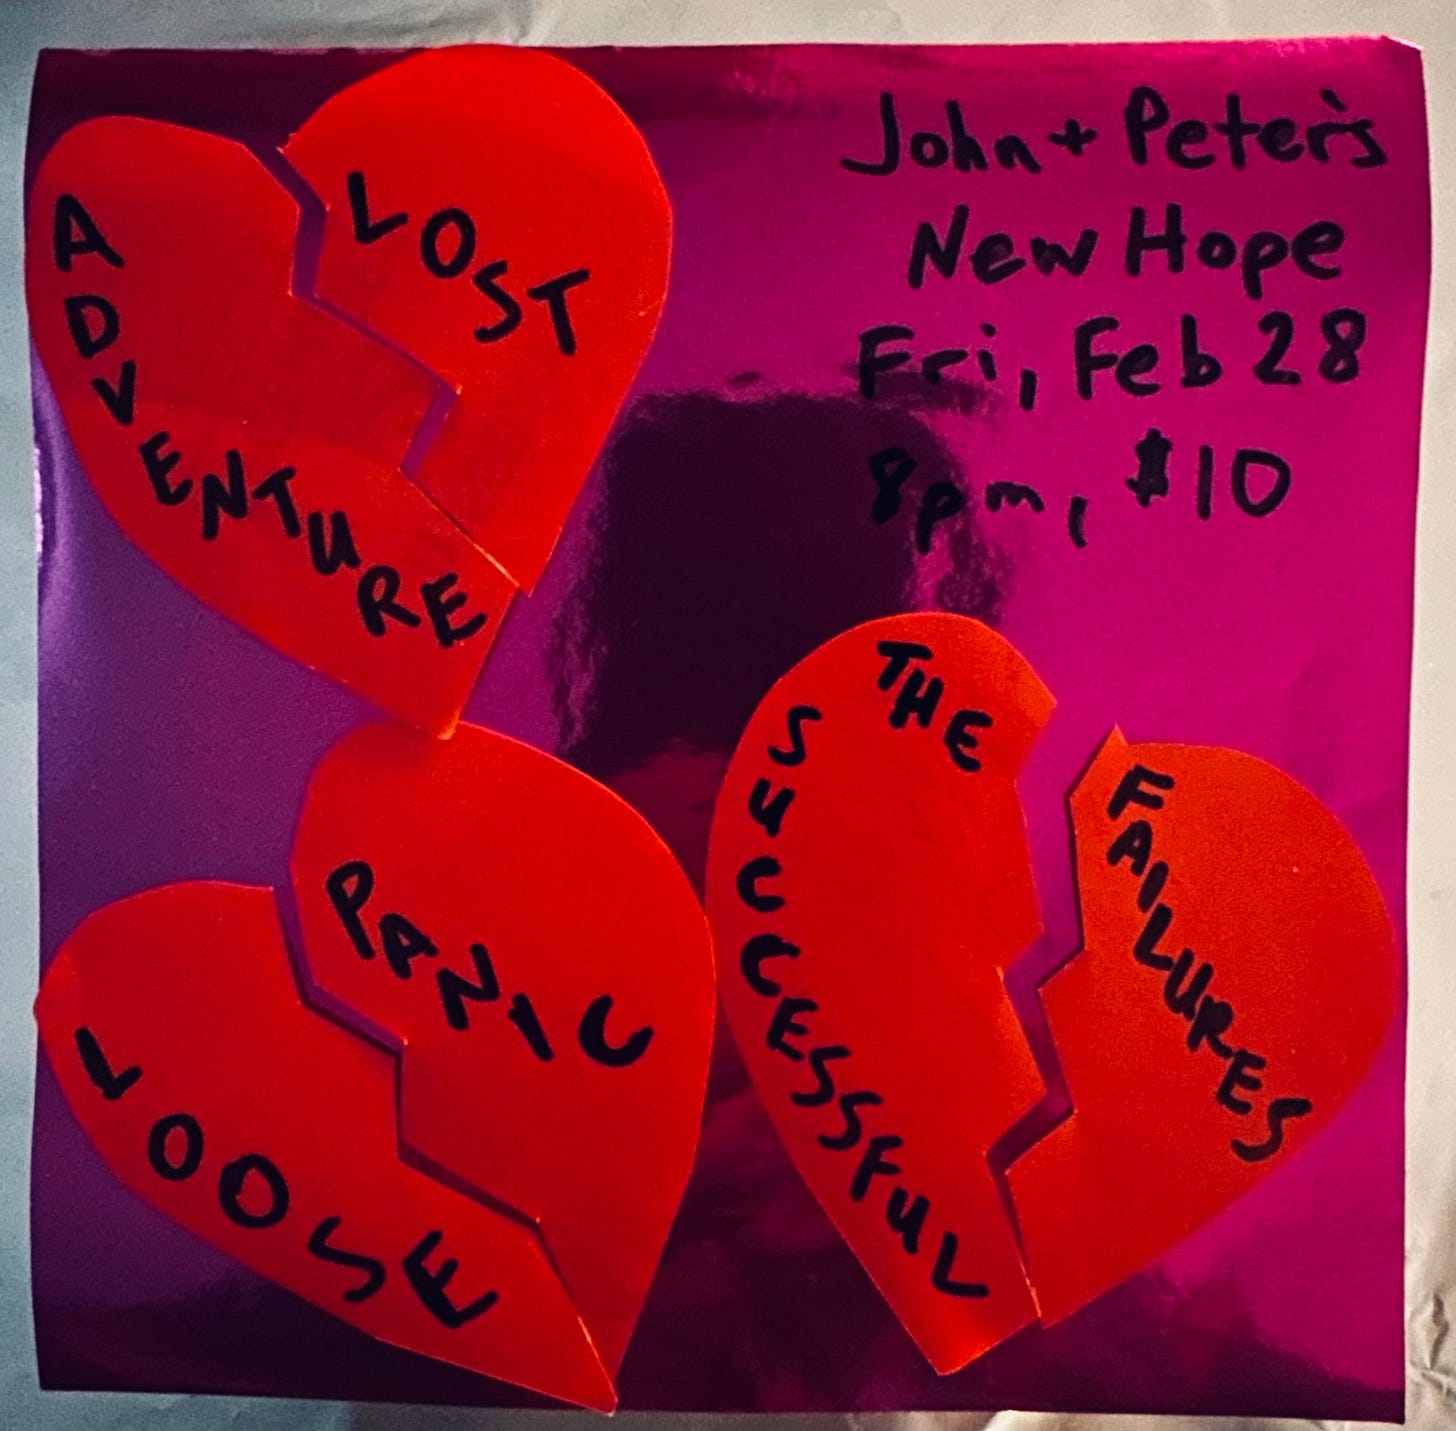 ADVENTURE
LOST
John + Peter's
New Hope
Fri, Feb 28
8pm, $10
LOOSE
PANIC
THE
SUCCESSFUL
FAILURES